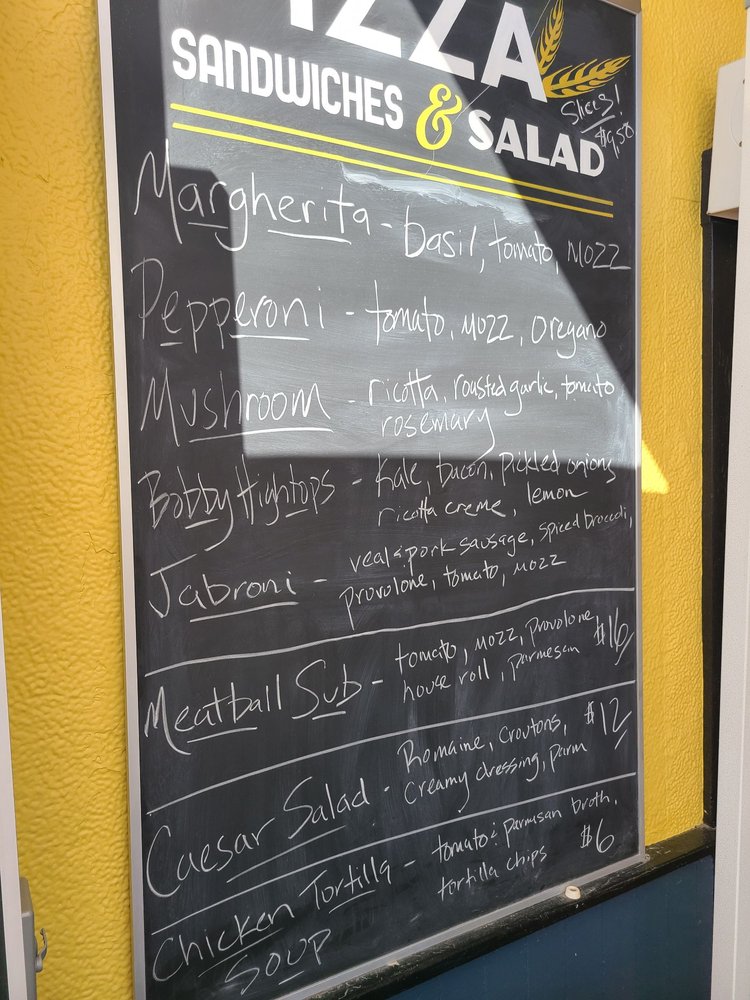 PIZZA
SANDWICHES & SALAD
Slices!
$9.50
Margherita - basil, tomato, mozz
Pepperoni - tomato, mozz, oregano
Mushroom - ricotta, roasted garlic, tomato,
rosemary
Bobby Hightops - Kale, bacon, pickled onions
ricotta creme, lemon
Jabroni - veal & pork sausage, spiced broccoli,
provolone, tomato, mozz
Meatball Sub - tomato, mozz, provolone $16
house roll, parmesan
Caesar Salad - Romaine, croutons, $12
creamy dressing, parm
Chicken Tortilla - tomato & parmesan broth,
Soup tortilla chips $6